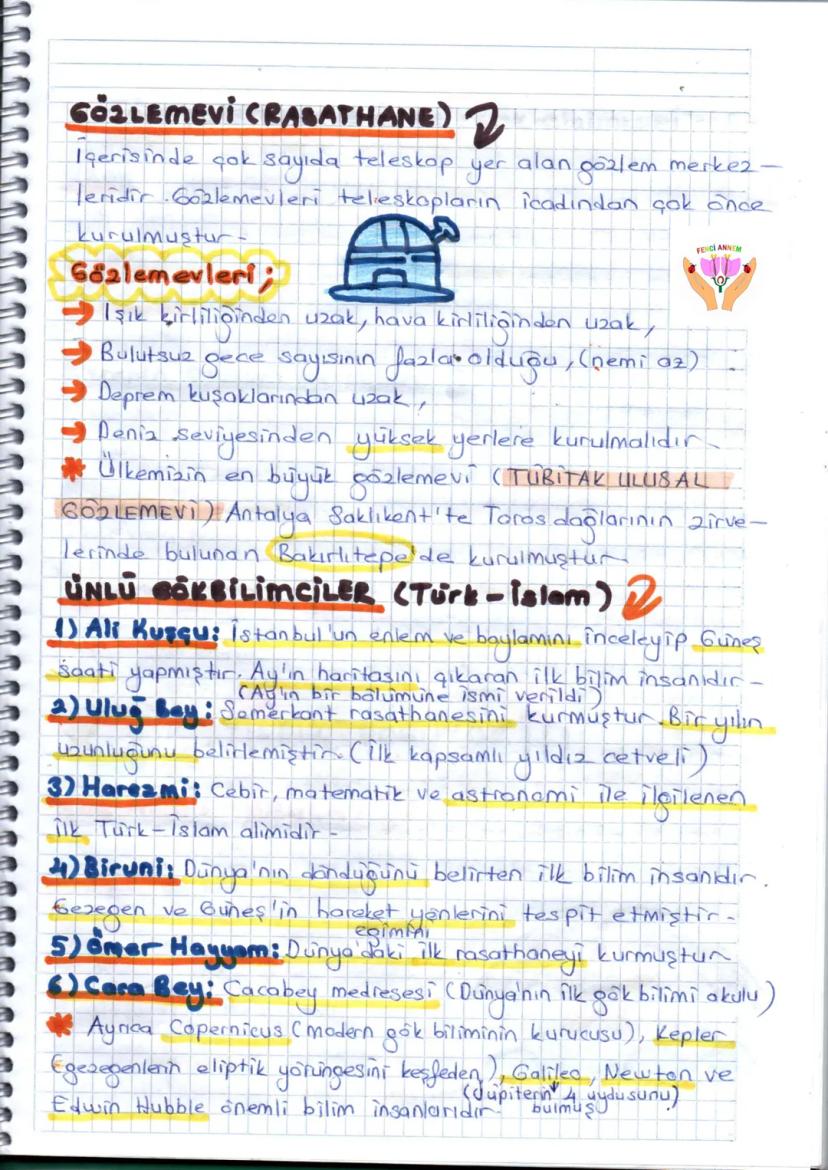 GÖZLEMEVİ (RASATHANE)
İçerisinde çok sayıda teleskop yer alan gözlem merkez-
leridir. Gözlemevleri teleskopların icadından çok önce
kurulmuştur.
FENCİ ANNEM
Gözlemevleri;
→ Işık kirliliğinden uzak, hava kirliliğinden uzak,
→ Bulutsuz gece sayısının fazla olduğu, (nemi az)
→ Deprem kuşaklarından uzak,
→ Deniz seviyesinden yüksek yerlere kurulmalıdır.
* Ülkemizin en büyük gözlemevi (TÜBİTAK ULUSAL
GÖZLEMEVİ) Antalya Saklıkent'te Toros dağlarının zirve-
lerinde bulunan Bakırlıtepe'de kurulmuştur.
ÜNLÜ GÖKBİLİMCİLER (Türk-İslam)
1) Ali Kuşçu: İstanbul'un enlem ve boylamını inceleyip Güneş
saati yapmıştır. Ay'ın haritasını çıkaran ilk bilim insanıdır-
(Ay'ın bir bölümüne ismi verildi)
2) Uluğ Bey: Semerkant rasathanesini kurmuştur. Bir yılın
uzunluğunu belirlemiştir. (İlk kapsamlı yıldız cetveli)
3) Harezmi: Cebir, matematik ve astronomi ile ilgilenen
ilk Türk-İslam alimidir-
4) Biruni: Dünya'nın döndüğünü belirten ilk bilim insanıdır.
Gezegen ve Güneş'in hareket yönlerini tespit etmiştir-
eğimini
5) Ömer Hayyam: Dünya'daki ilk rasathaneyi kurmuştur
6) Caca Bey: Cacabey medresesi (Dünya'nın ilk gök bilimi okulu)
* Ayrıca Copernicus (modern gök biliminin kurucusu), Kepler
(gezegenlerin eliptik yörüngesini keşfeden), Galileo, Newton ve
(Jüpiterin 4 uydusunu)
Edwin Hubble önemli bilim insanlarıdır. bulmuş